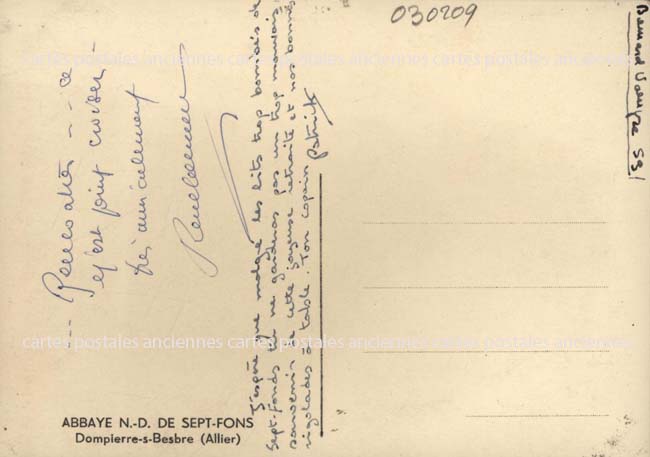 030209
Bernard
59
--- Rencontre --- ce
n'est point croiser
très amicalement
J'espère que malgré les lits trop bombés de
Sept-Fonds tu ne garderas pas un trop mauvais
souvenir de cette joyeuse retraite et nos bonnes
rigolades à table. Ton copain Patrick
ABBAYE N.-D. DE SEPT-FONS
Dompierre-s-Besbre (Allier)
cartes postales anciennes cartes postales anciennes cartes postales anciennes
cartes postales anciennes cartes postales anciennes cartes postales anciennes